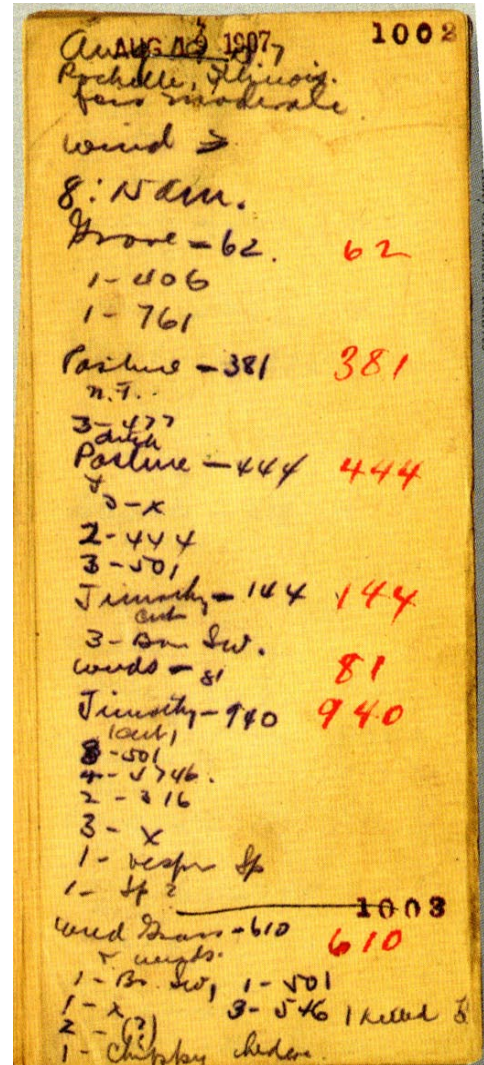 AUG 19 1907 1002
Rochelle, Illinois.
fair moderate
wind >
8:15 am.
Grove - 62. 62
1 - 406
1 - 761
Pasture - 381 381
n.T..
3 - 477
ditch
Pasture - 444 444
3 - x
2 - 444
3 - 501
Timothy - 144 144
cut
3 - Barn Sw.
weeds - 81 81
Timothy - 940 940
(cut)
8 - 501
4 - 5746.
2 - 316
3 - x
1 - vesper Sp
1 - Sp ?
1003
Grass - 610 610
+ weeds.
1 - Bn. Sw, 1 - 501
1 - x 3 - 546 1 killed
2 - (?)
1 - Chippy